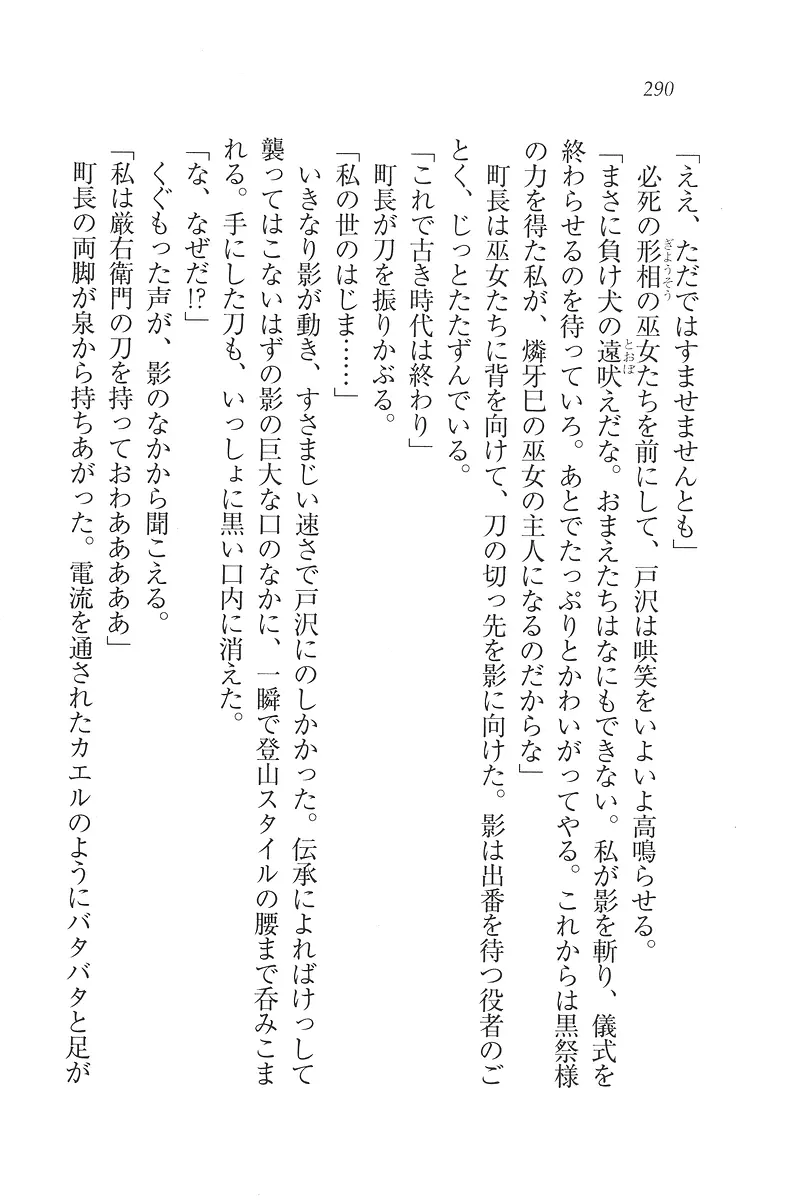 290
「ええ、ただではすませませんとも」
必死の形相の巫女たちを前にして、戸沢は哄笑をいよいよ高鳴らせる。
ぎょうそう
「まさに負け犬の遠吠えだな。おまえたちはなにもできない。私が影を斬り、儀式を
とおぼ
終わらせるのを待っていろ。あとでたっぷりとかわいがってやる。これからは黒祭様
の力を得た私が、燐牙巳の巫女の主人になるのだからな」
町長は巫女たちに背を向けて、刀の切っ先を影に向けた。影は出番を待つ役者のご
とく、じっとたたずんでいる。
「これで古き時代は終わり」
町長が刀を振りかぶる。
「私の世のはじま……」
いきなり影が動き、すさまじい速さで戸沢にのしかかった。伝承によればけっして
襲ってはこないはずの影の巨大な口のなかに、一瞬で登山スタイルの腰まで呑みこま
れる。手にした刀も、いっしょに黒い口内に消えた。
「な、なぜだ!?」
くぐもった声が、影のなかから聞こえる。
「私は厳右衛門の刀を持っておわああああ」
町長の両脚が泉から持ちあがった。電流を通されたカエルのようにバタバタと足が